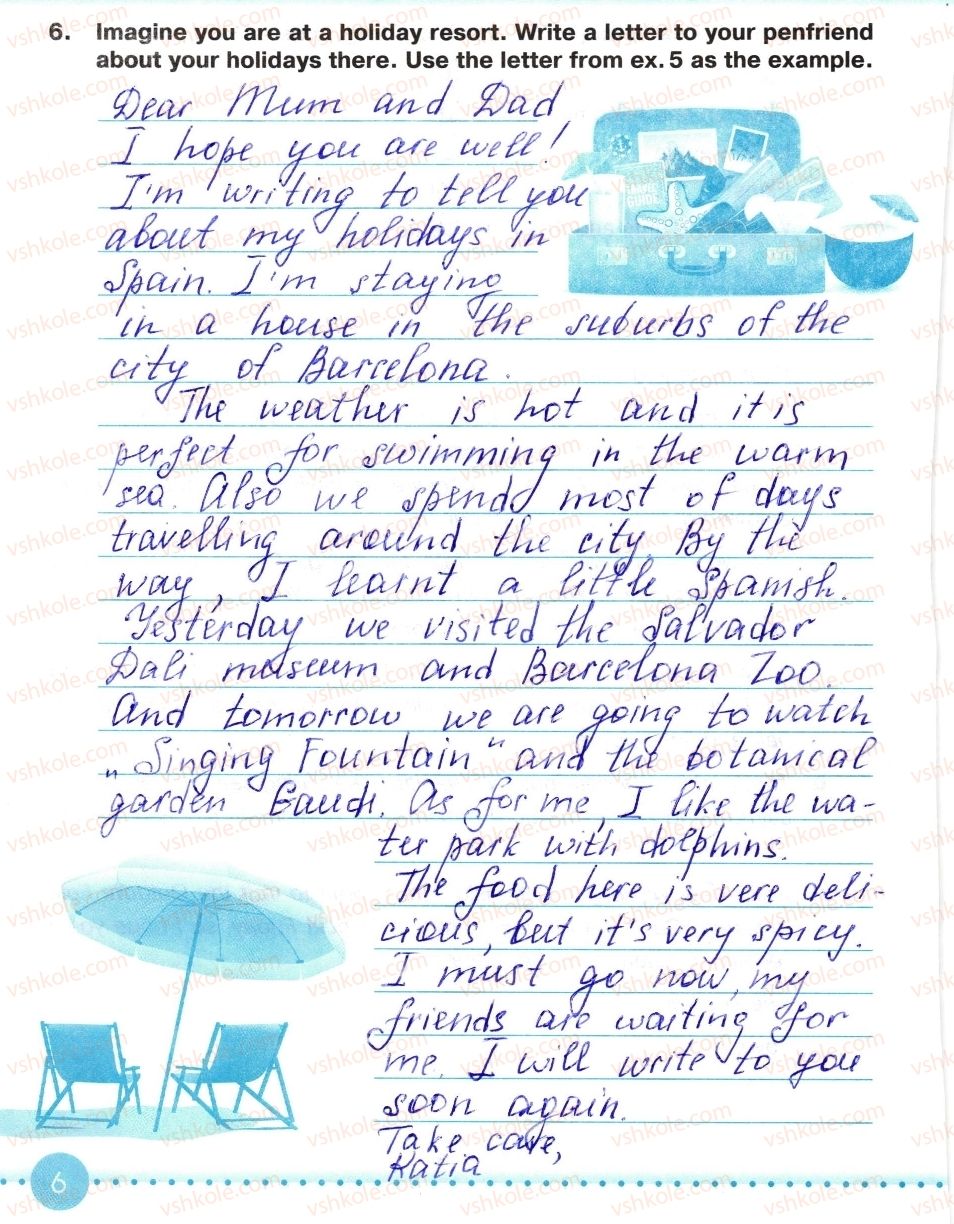 6. Imagine you are at a holiday resort. Write a letter to your penfriend
about your holidays there. Use the letter from ex. 5 as the example.
Dear Mum and Dad,
I hope you are well!
I'm writing to tell you
about my holidays in
Spain. I'm staying
in a house in the suburbs of the
city of Barcelona.
The weather is hot and it is
perfect for swimming in the warm
sea. Also we spend most of days
travelling around the city. By the
way, I learnt a little Spanish.
Yesterday we visited the Salvador
Dali museum and Barcelona Zoo.
And tomorrow we are going to watch
„Singing Fountain" and the botanical
garden Gaudi. As for me, I like the wa-
ter park with dolphins.
The food here is vere deli-
cious, but it's very spicy.
I must go now, my
friends are waiting for
me. I will write to you
soon again.
Take care,
Katia
6
TRAVEL
GUIDE
vshkole.com